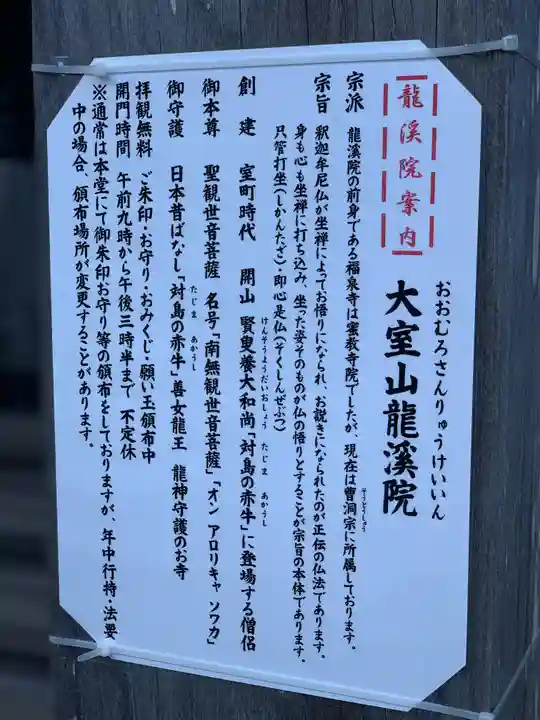 龍溪院案内
おおむろさんりゅうけいいん
大室山龍溪院
宗派　龍溪院の前身である福泉寺は密教寺院でしたが、現在は曹洞宗に所属しております。
そうとうしゅう
宗旨　釈迦牟尼仏が坐禅によってお悟りになられ、お説きになられたのが正伝の仏法であります。
身も心も坐禅に打ち込み、坐った姿そのものが仏の悟りとすることが宗旨の本体であります。
只管打坐(しかんたざ)・即心是仏(そくしんぜぶつ)
けんそうようだいおしょう　たじま　あかうし
創建　室町時代　開山　賢叟養大和尚「対島の赤牛」に登場する僧侶
御本尊　聖観世音菩薩　名号「南無観世音菩薩」「オン アロリキャ ソワカ」
たじま　あかうし
御守護　日本昔ばなし「対島の赤牛」善女龍王　龍神守護のお寺
拝観無料　ご朱印・お守り・おみくじ・願い玉頒布中
開門時間　午前九時から午後三時半まで　不定休
※通常は本堂にて御朱印お守り等の頒布をしておりますが、年中行持・法要
中の場合、頒布場所が変更することがあります。